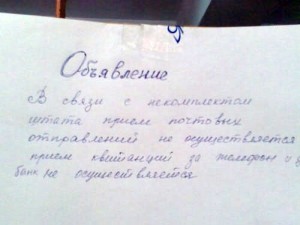 Объявление
В связи с некомплектом
штата прием почтовых
отправлений не осуществляется
прием квитанций за телефон и
банк не осуществляется